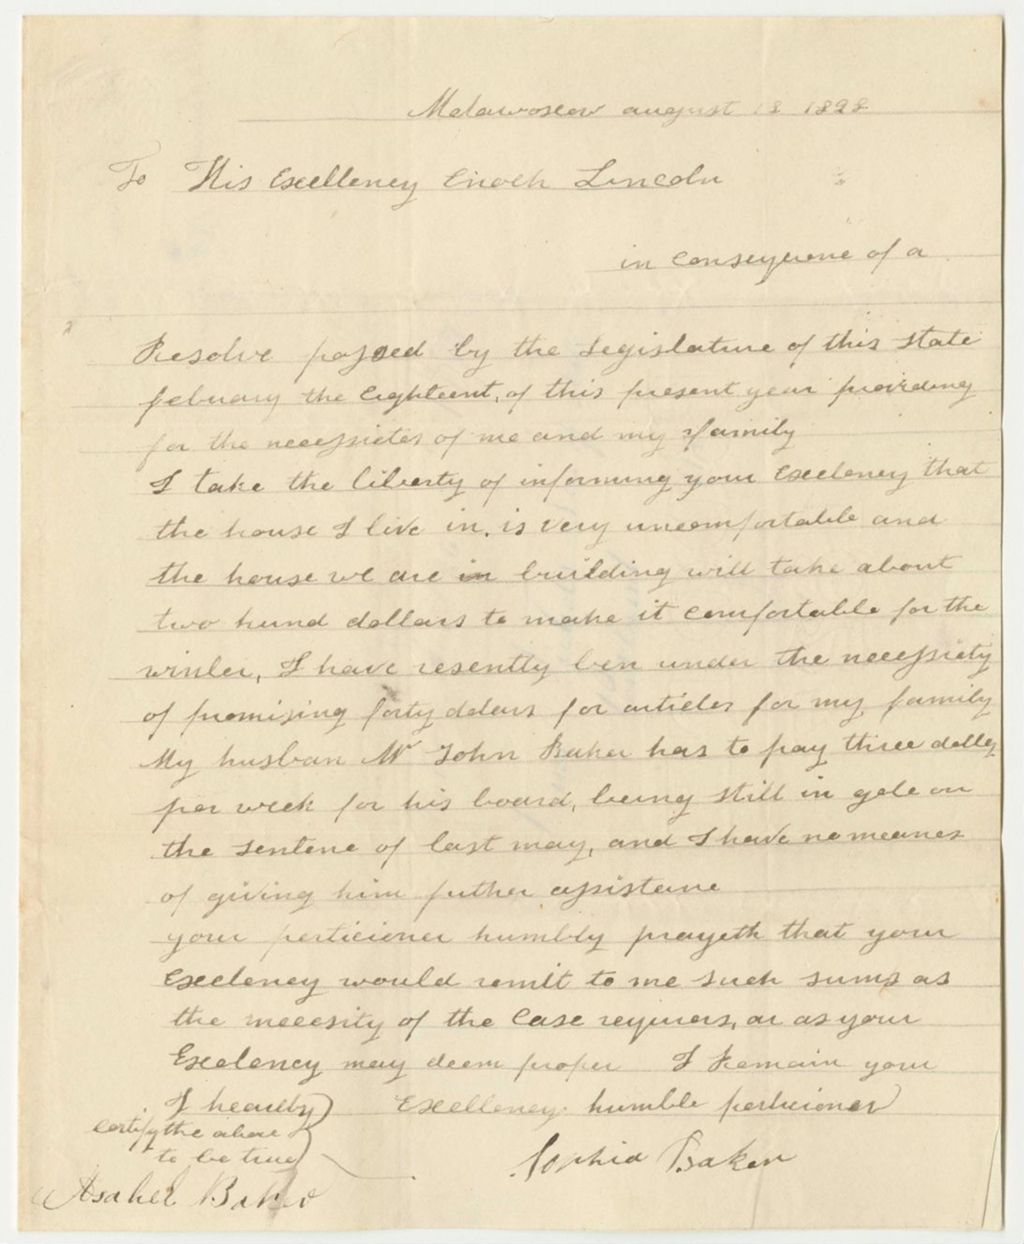 Madawoscow august 12 1828
To His Excellency Enoch Lincoln
in consequene of a
Resolve passed by the Legislature of this State
febuary the Eighteent, of this present year providing
for the necessietes of me and my family
I take the liberty of informing your Exceleney that
the house I live in, is very uncomfortable and
the house we are in building will take about
two hund dollars to make it comfortable for the
winter, I have resently ben under the necessiety
of promising forty dolars for articles for my family
My husban Mr John Baker has to pay three dolles
per week for his board, being still in gele on
the sentene of last may, and I have no meanes
of giving him futher assistane
your perticioner humbly prayeth that your
Exceleney would remit to me such sums as
the necesity of the Case requiers, or as your
Exelency may deem proper I Remain your
Excelleney humble perticioner
Sophia Baker
I hearby
certify the above
to be true
Asahel Baker